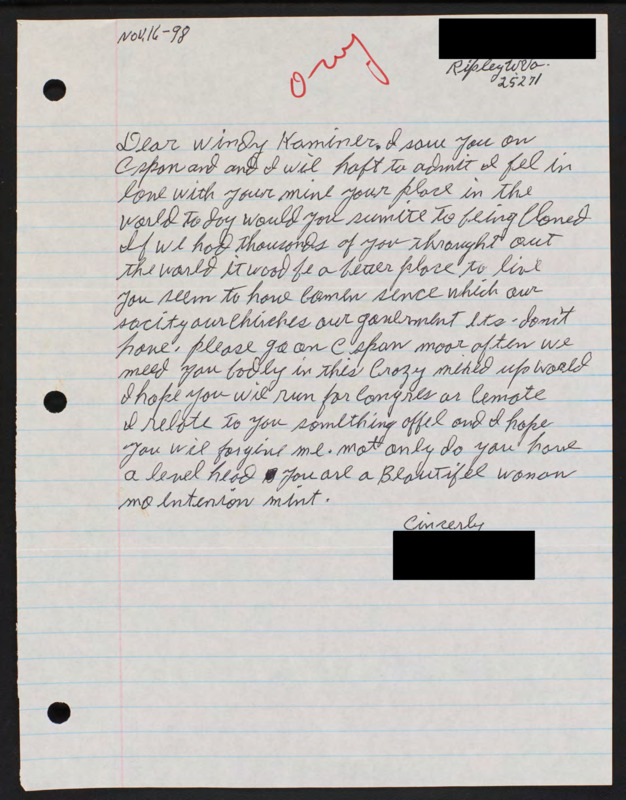 Nov. 16-98
Ripley W Va.
25271
Dear Windy Kaminer, I saw you on
Cspan and and I wil haft to admit I fel in
love with your mine your place in the
world to day would you sumite to being Cloned
if we had thousands of you throught out
the world it wood be a beter place to live
you seem to have Comen sence which our
socity our Chirches our goverment Ets - don't
have. please go on C span moor often we
need you badly in this Crazy mixed up world
I hope you wil run for Congres or Cenote
I relate to you something offel and I hope
you wil forgive me. not only do you have
a level head you are a Beautifel woman
no Intenion mint.
Cincerly